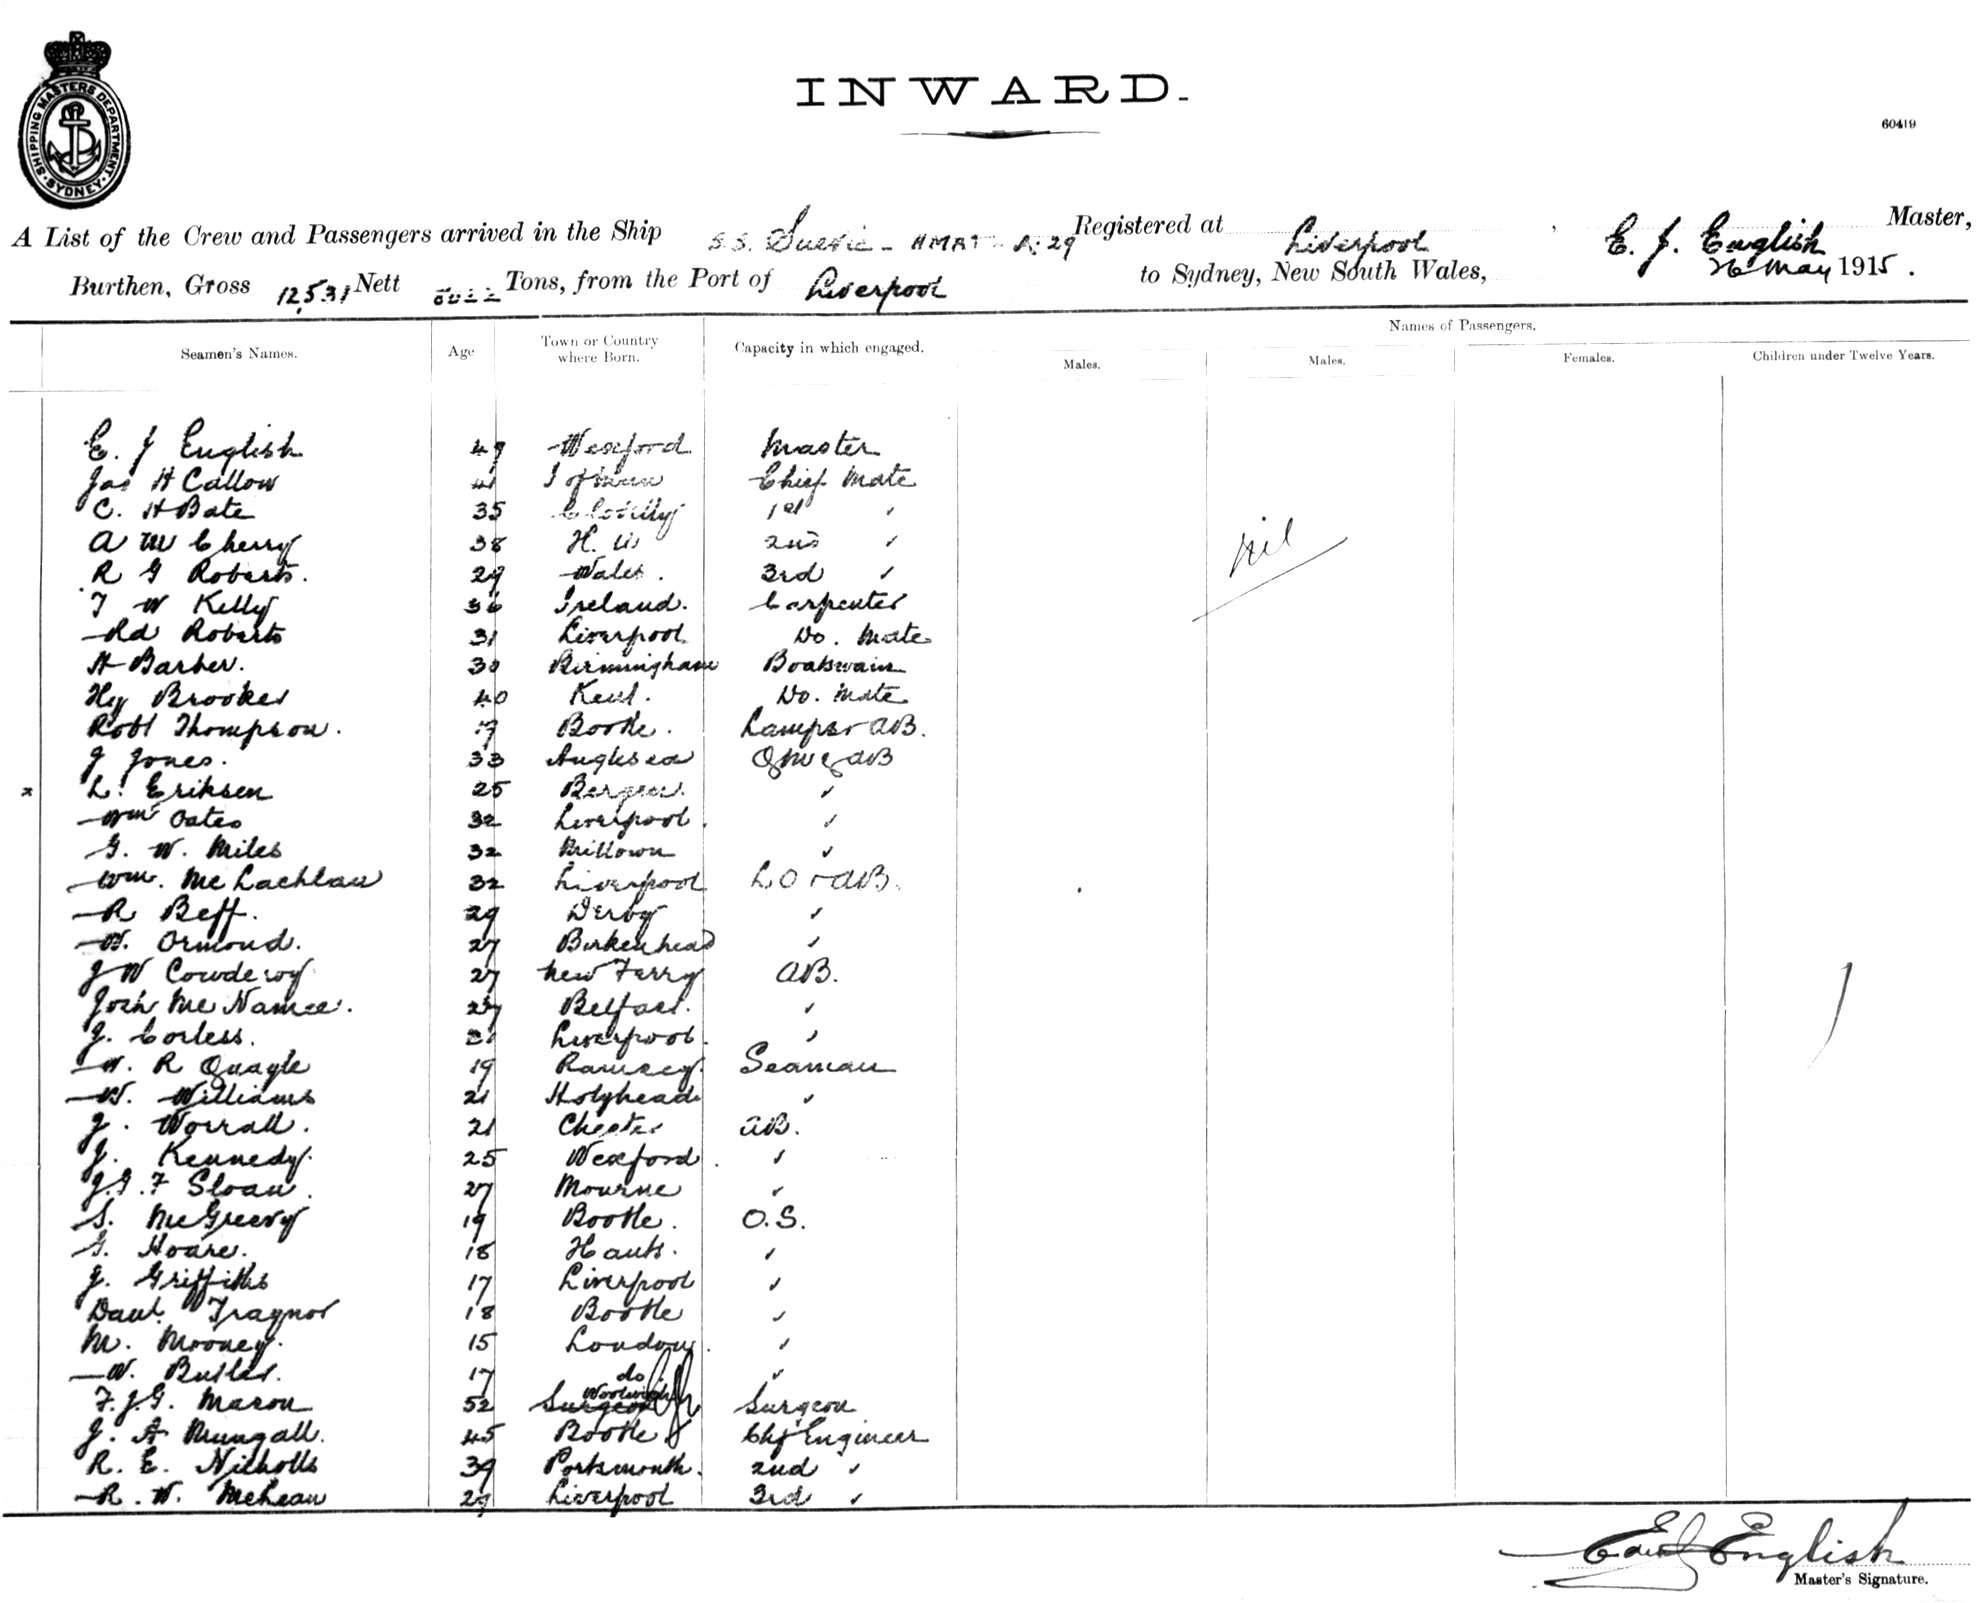 SHIPPING MASTERS DEPARTMENT
SYDNEY
INWARD.
60419
A List of the Crew and Passengers arrived in the Ship S.S. Suevic - HMAT - A. 29 Registered at Liverpool, E. J. English Master,
Burthen, Gross 12,531 Nett Tons, from the Port of Liverpool to Sydney, New South Wales, 26 May 1915.
Names of Passengers.
Seamen's Names. Age Town or Country where Born. Capacity in which engaged. Males. Males. Females. Children under Twelve Years.
E. J English 49 Wexford Master
Jas H Callow 41 I of Man Chief Mate
C. H Bate 35 Clovelly 1st "
A W Cherry 38 H. W 2nd "
R G Roberts. 29 Wales. 3rd "
nil
T W Kelly 36 Ireland. Carpenter
Rd Roberts 31 Liverpool Do. Mate
H Barber. 30 Birmingham Boatswain
Hy Brooker 40 Kent. Do. Mate
Robt Thompson. Bootle. Lamps & AB.
J Jones. 33 Anglesea QM & AB
x L. Eriksen 25 Bergen. "
Wm Oates 32 Liverpool. "
G. W. Miles 32 Milltown "
Wm. McLachlan 32 Liverpool L O & AB.
R Beff. 29 Derby "
W. Ormond. 27 Birkenhead "
J W Cowderoy 27 New Ferry AB.
Josh McNamee. 27 Belfast. "
J. Corless. 21 Liverpool. "
W. R Quayle 19 Ramsey. Seaman
W. Williams 21 Holyhead "
J. Worrall. 21 Chester AB.
J. Kennedy. 25 Wexford. "
J. G. F Sloan. 27 Mourne "
S. McGreevy 19 Bootle. O.S.
G. Hoare. 18 Hants. "
J. Griffiths 17 Liverpool "
Danl. Traynor 18 Bootle "
M. Mooney. 15 London. "
W. Butler. 17 do. "
F. J. G. Mason 52 Surgeon Woolwich Surgeon
J. A Mungall. 45 Bootle Chf Engineer
R. E. Nicholls 39 Portsmouth. 2nd "
R. W. McLean 29 Liverpool 3rd "
Edwd J English
Master's Signature.